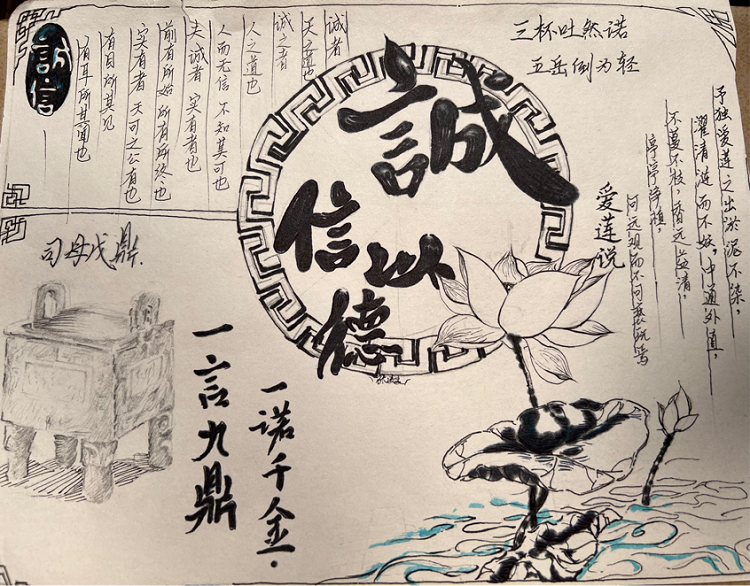 誠信
诚者
天之道也
诚之者
人之道也
人而无信 不知其可也
夫诚者 实有者也
前有所始 所有所终也
实有者 天可之公有也
有目所共见
有耳所共闻也
誠
信以
德
三杯吐然诺
五岳倒为轻
予独爱莲之出淤泥不染，
濯清涟而不妖，中通外直，
不蔓不枝，香远益清，
亭亭净植，
可远观而不可亵玩焉
爱莲说
司母戊鼎.
一言九鼎
一诺千金.